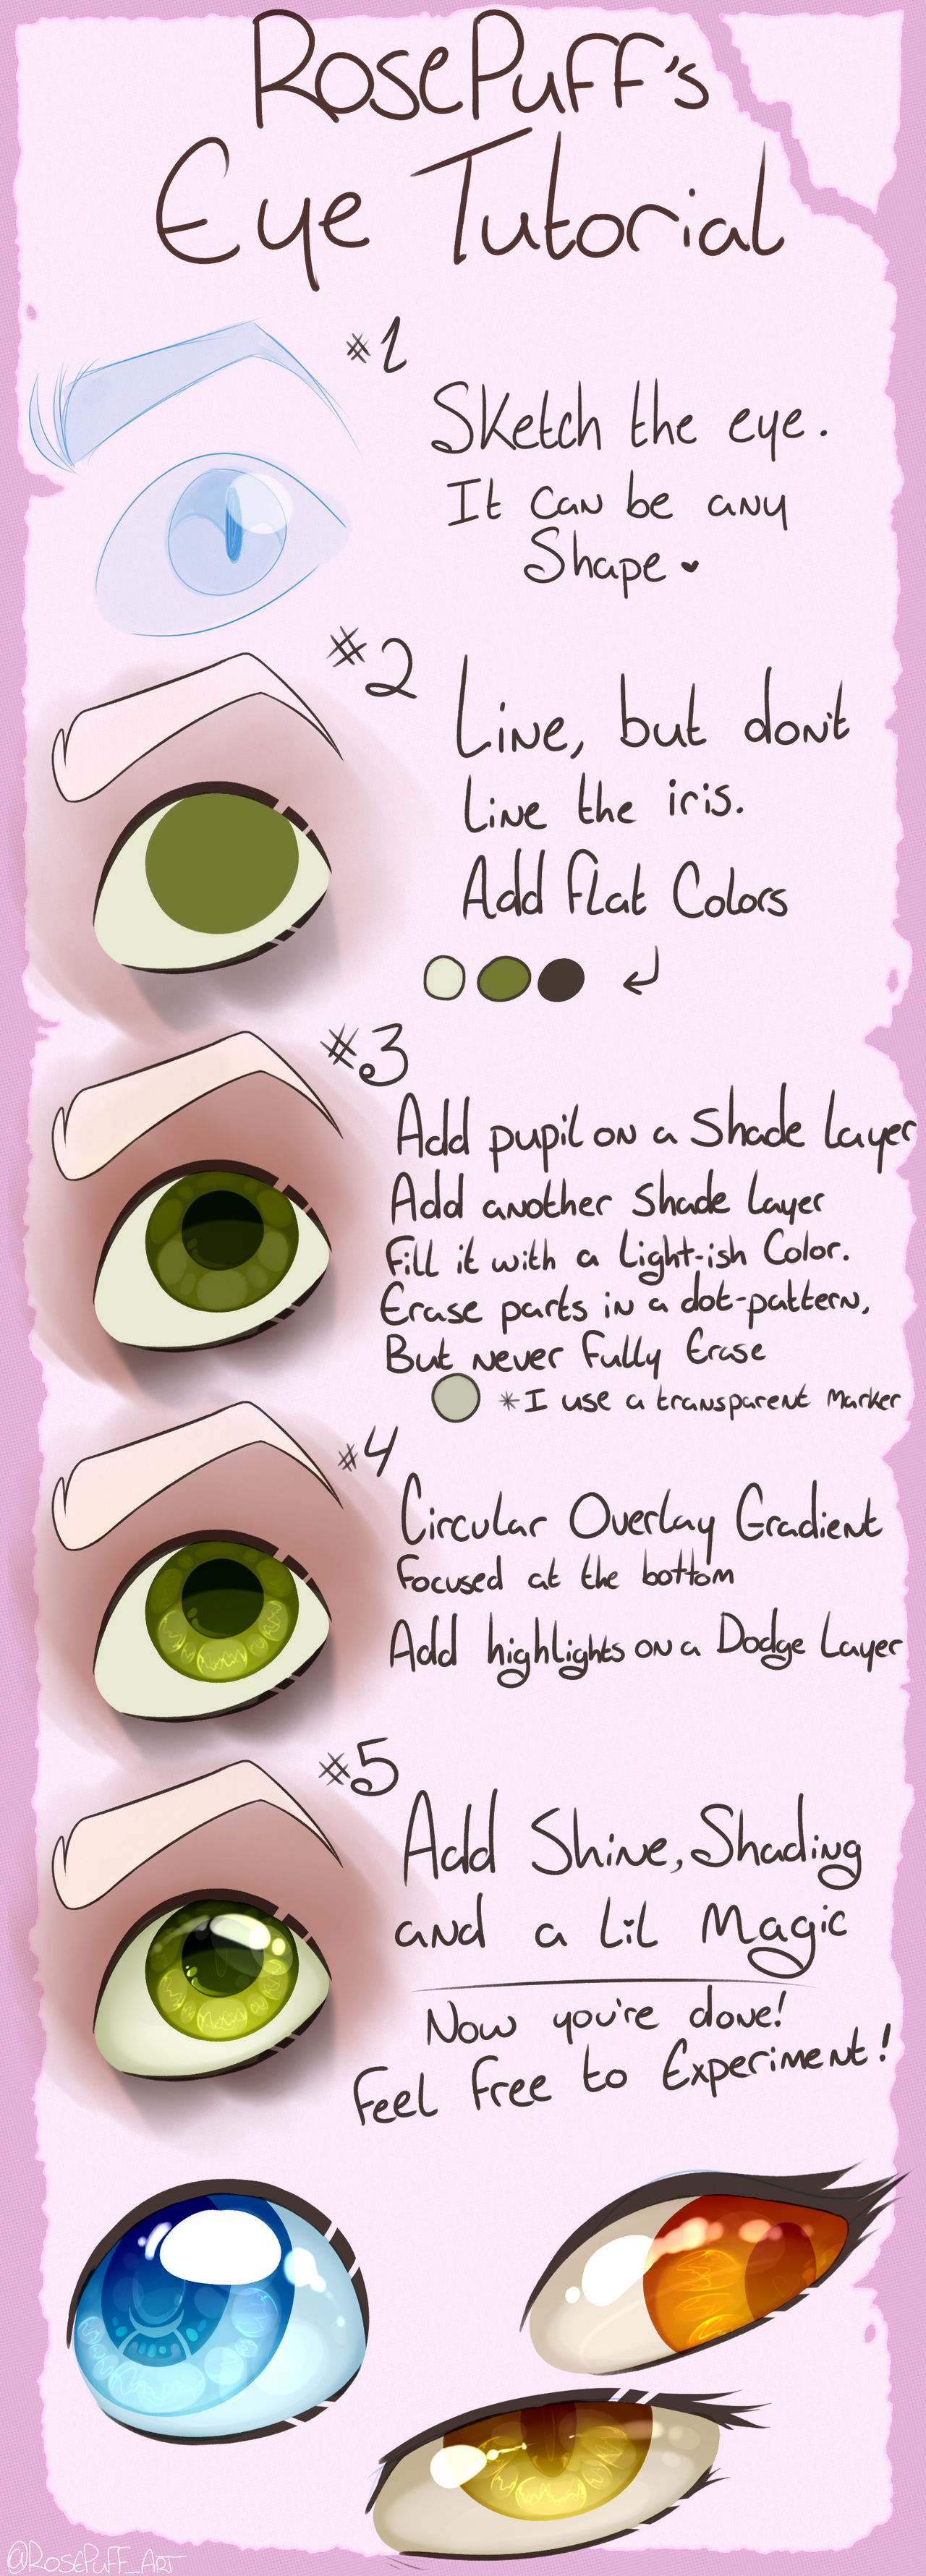 RosePuff's
Eye Tutorial
#1
Sketch the eye.
It can be any
Shape ♥
#2
Line, but don't
Line the iris.
Add flat Colors
#3
Add pupil on a Shade Layer
Add another Shade Layer
Fill it with a Light-ish Color.
Erase parts in a dot-pattern,
But never fully Erase
*I use a transparent Marker
#4
Circular Overlay Gradient
Focused at the bottom
Add highlights on a Dodge Layer
#5
Add Shine, Shading
and a Lil Magic
Now you're done!
Feel Free to Experiment!
@RosePuff_Art